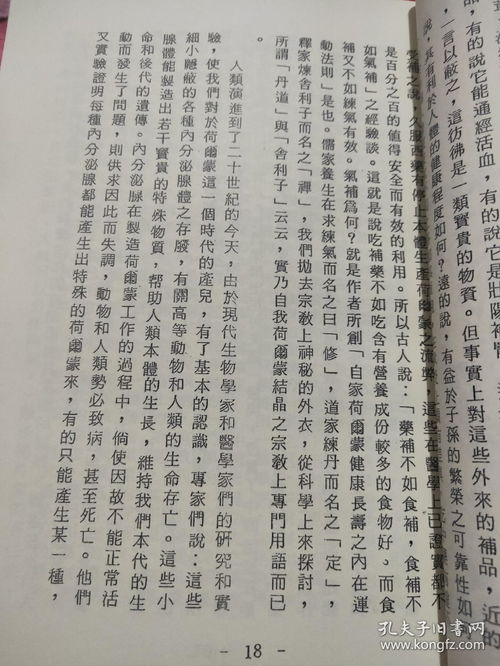 品，有的說它能通經活血，有的說它是壯陽補
，一言以蔽之，這彷彿是一類寶貴的物資。但事實上對這些外來的補品，近的
說，具有利於人體的健康程度如何？遠的說，有益於子孫的繁榮之可靠性如
營補之說，久服西藥有停止本體生產荷爾蒙之流弊，這些在醫學上已證實都不
是百分之百的值得安全而有效的利用。所以古人說，「藥補不如食補，食補不
如氣補」之經驗談。這就是說吃補藥不如吃含有營養成份較多的食物好。而食
補又不如練氣有效。氣補爲何？就是作者所創「自家荷爾蒙健康長壽之內在運
動法則」是也。儒家養生在求練氣而名之曰「修」，道家練丹而名之「定」，
釋家煉舍利子而名之「禪」，我們拋去宗敎上神秘的外衣，從科學上來探討，
所謂「丹道」與「舍利子」云云，實乃自我荷爾蒙結晶之宗敎上專門用語而已
。
人類演進到了二十世紀的今天，由於現代生物學家和醫學家們的硏究和實
驗，使我們對於荷爾蒙這一個時代的產兒，有了基本的認識，專家們說：這些
細小隱蔽的各種內分泌腺體之存廢，有關高等動物和人類的生命存亡。這些小
腺體能製造出若干寶貴的特殊物質，幫助人類本體的生長，維持我們本代的生
命和後代的遺傳。內分泌腺在製造荷爾蒙工作的過程中，倘使因故不能正常活
動而發生了問題，則供求因此而失調，動物和人類勢必致病，甚至死亡。他們
又實驗證明每種內分泌腺都能產生出特殊的荷爾蒙來，有的只能產生某一種，
- 18 -
孔夫子旧书网